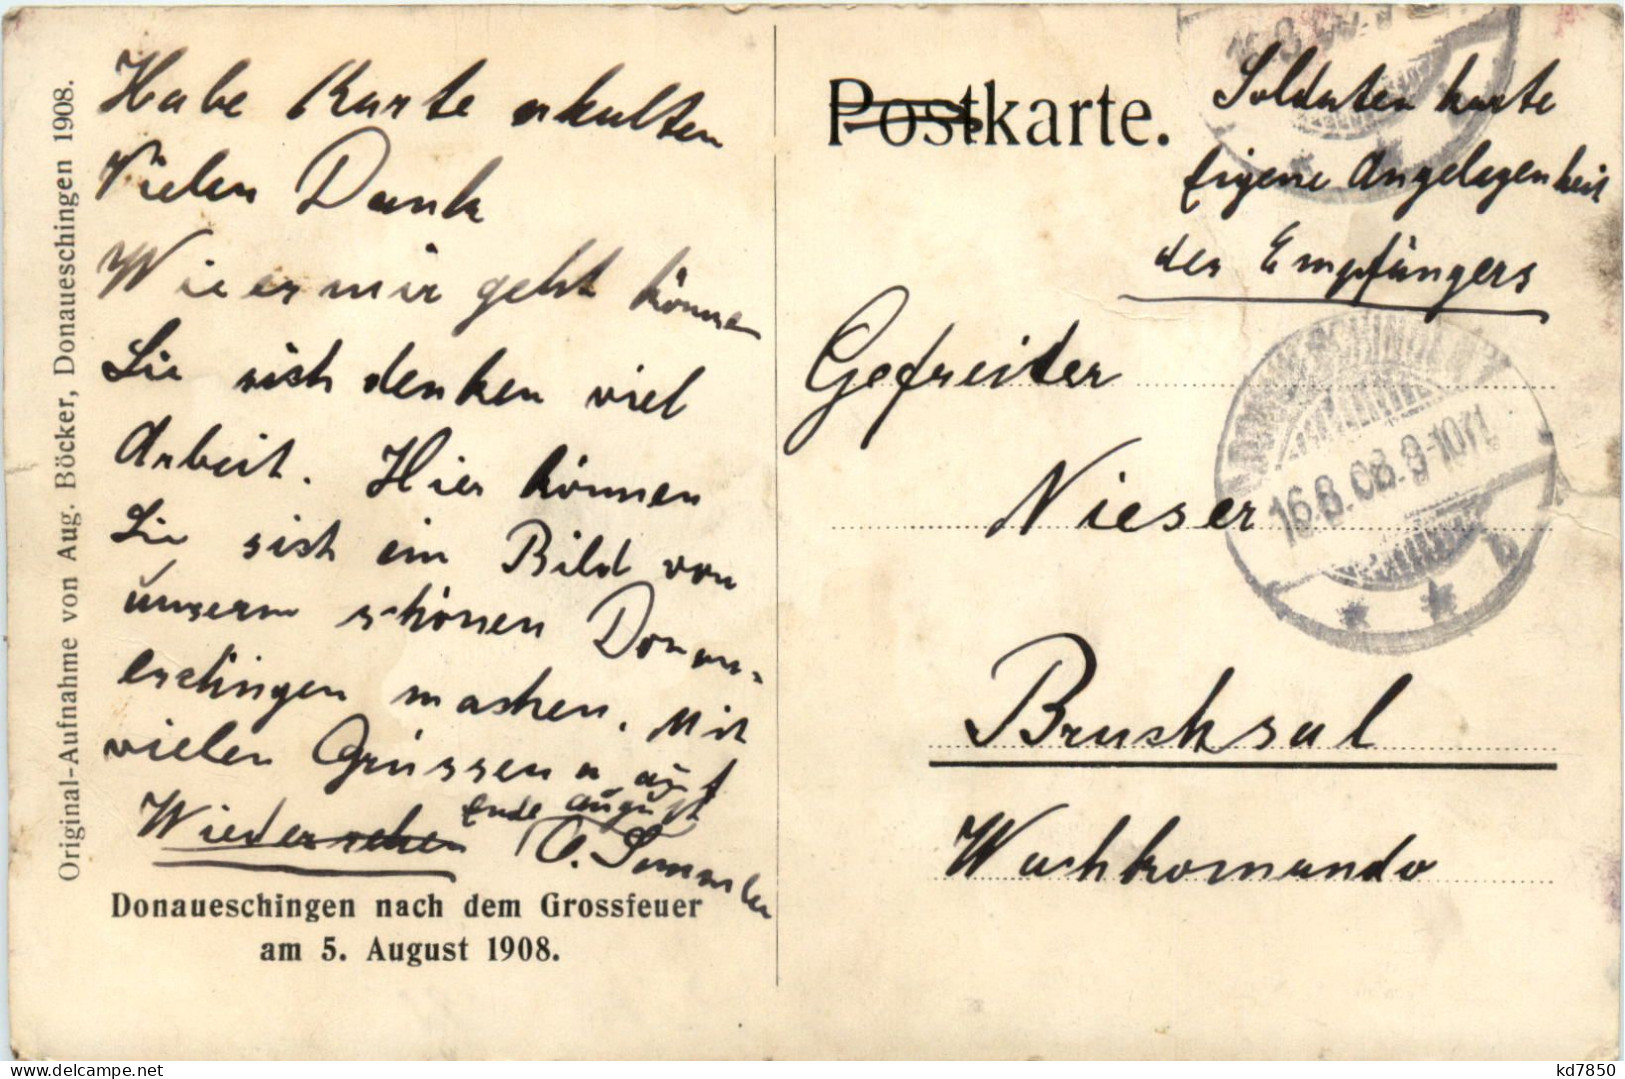 Original-Aufnahme von Aug. Böcker, Donaueschingen 1908.
Habe Karte erhalten
Vielen Dank
Wie es mir geht können
Sie sich denken viel
Arbeit. Hier können
Sie sich ein Bild von
unserm schönen Donau-
eschingen machen. Mit
vielen Grüssen u auf
Ende August
Wiedersehen O. Semmler
Donaueschingen nach dem Grossfeuer
am 5. August 1908.
Postkarte.
Soldaten karte
Eigene Angelegenheit
des Empfängers
Gefreiter
Nieser
Bruchsal
Wachkomando
16.8.08.9-10V.
kd7850